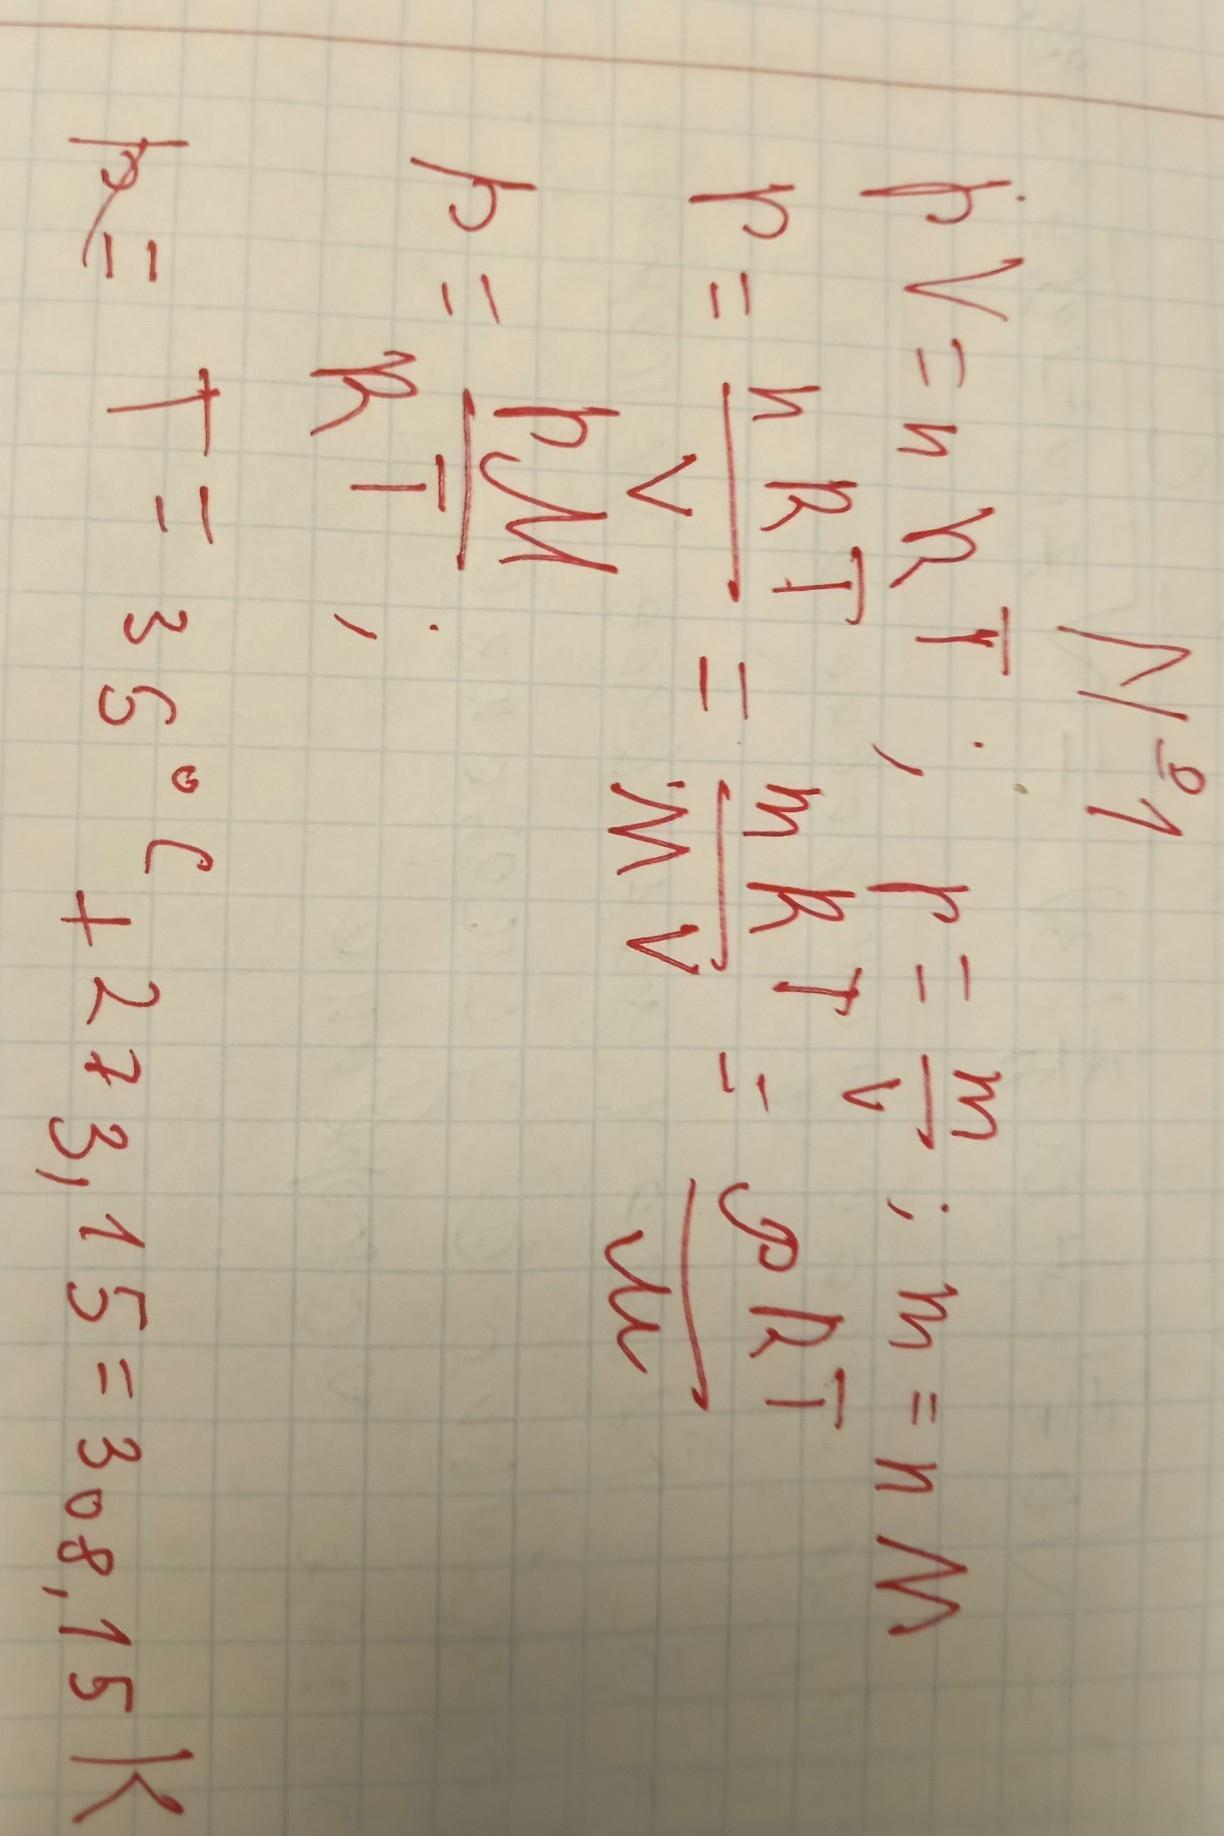 №1
pV = nRT; ρ = m/V; m = nM
p = nRT/V = mRT/MV = ρRT/M
ρ = pM/RT;
T = 35°C + 273,15 = 308,15 K